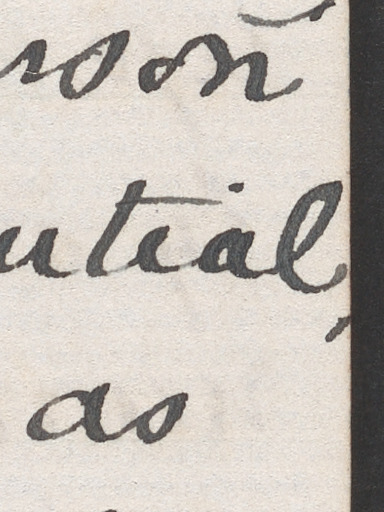 rson
ntial,
as